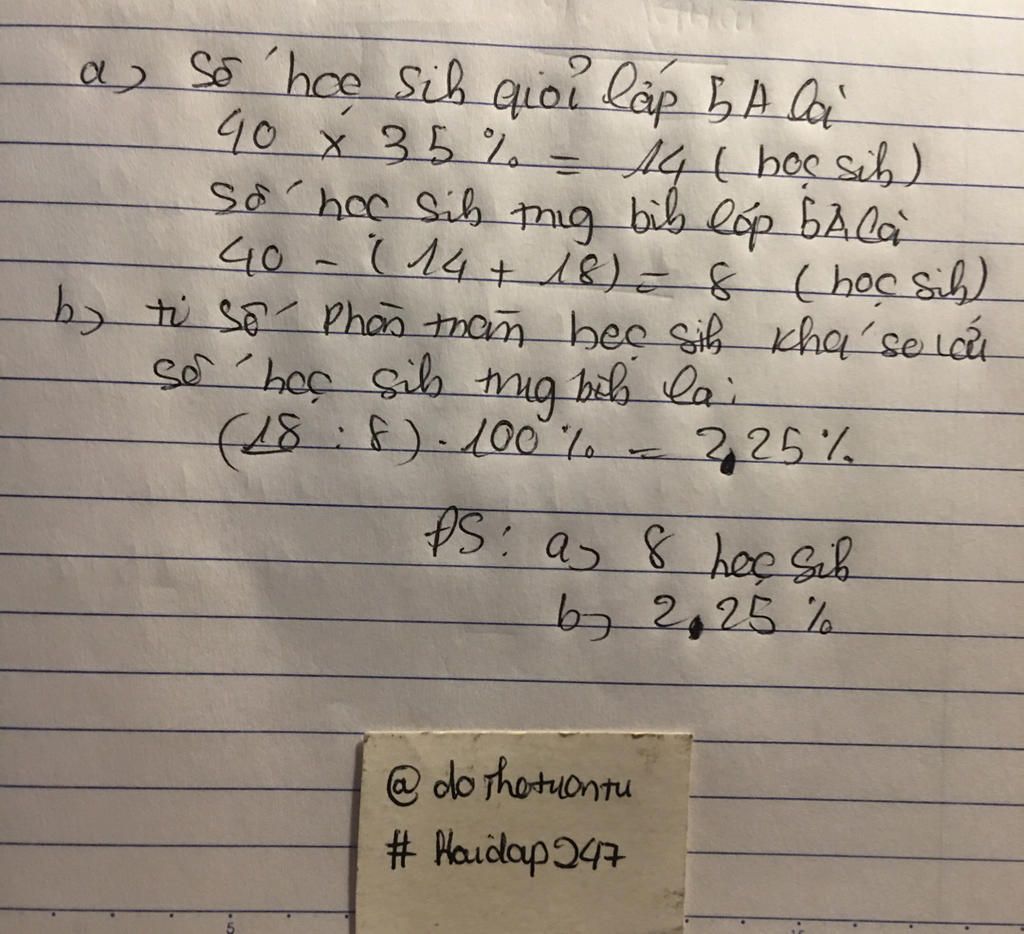 a) Số học sih giỏi lớp 5A là
40 x 35% = 14 (học sih)
Số học sih trug bìh lớp 5A là
40 - (14 + 18) = 8 (học sih)
b) tỉ số phần trăm học sih khá so với
số học sih trug bìh là:
(18 : 8) . 100% = 2,25%
ĐS: a) 8 học sih
b) 2,25%
@dothotuontu
#Hoidap247
5